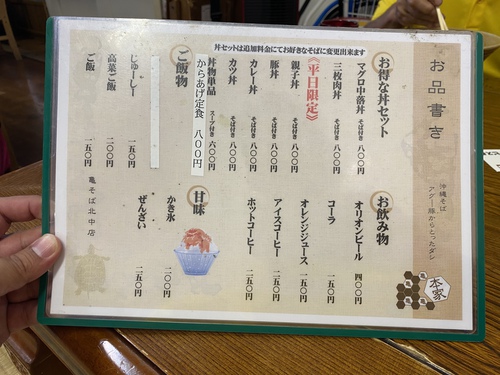 丼セットは追加料金にてお好きなそばに変更出来ます
お品書き
沖縄そば
アグー豚からとったダシ
本家
亀
亀
亀
お得な丼セット
マグロ中落丼 そば付き 八〇〇円
三枚肉丼 そば付き 八〇〇円
《平日限定》
親子丼 そば付き 八〇〇円
豚丼 そば付き 八〇〇円
カレー丼 そば付き 八〇〇円
カツ丼 そば付き 八〇〇円
丼物単品 スープ付き 六〇〇円
からあげ定食 八〇〇円
ご飯物
じゅーしー 一五〇円
高菜ご飯 二〇〇円
ご飯 一五〇円
お飲み物
オリオンビール 四〇〇円
コーラ 一五〇円
オレンジジュース 一五〇円
アイスコーヒー 二五〇円
ホットコーヒー 二五〇円
甘味
かき氷 二〇〇円
ぜんざい 二五〇円
亀そば北中店